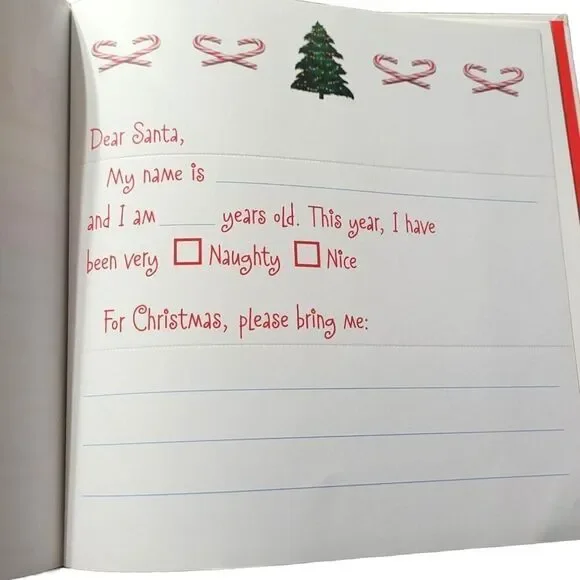 Dear Santa,
My name is ____________________
and I am _____ years old. This year, I have
been very ☐ Naughty ☐ Nice
For Christmas, please bring me: